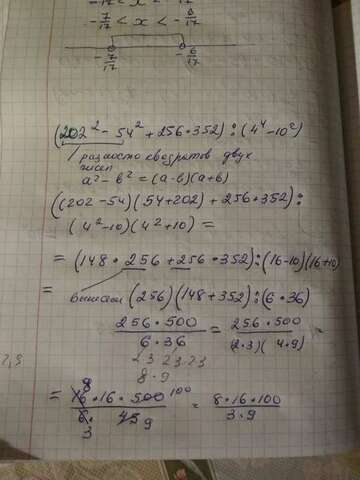 - 7/17 < x < - 6/17
- 7/17   - 6/17
(202² - 54² + 256 * 352) : (4⁴ - 10²)
разность квадратов двух
чисел
a² - b² = (a - b)(a + b)
((202 - 54)(54 + 202) + 256 * 352) :
(4² - 10)(4² + 10) =
= (148 * 256 + 256 * 352) : (16 - 10)(16 + 10)
= выносим (256)(148 + 352) : (6 * 36)
256 * 500 / 6 * 36 = 256 * 500 / (2 * 3)(4 * 9)
8 * 9
2,3
8 * 16 * 100 / 3 * 9